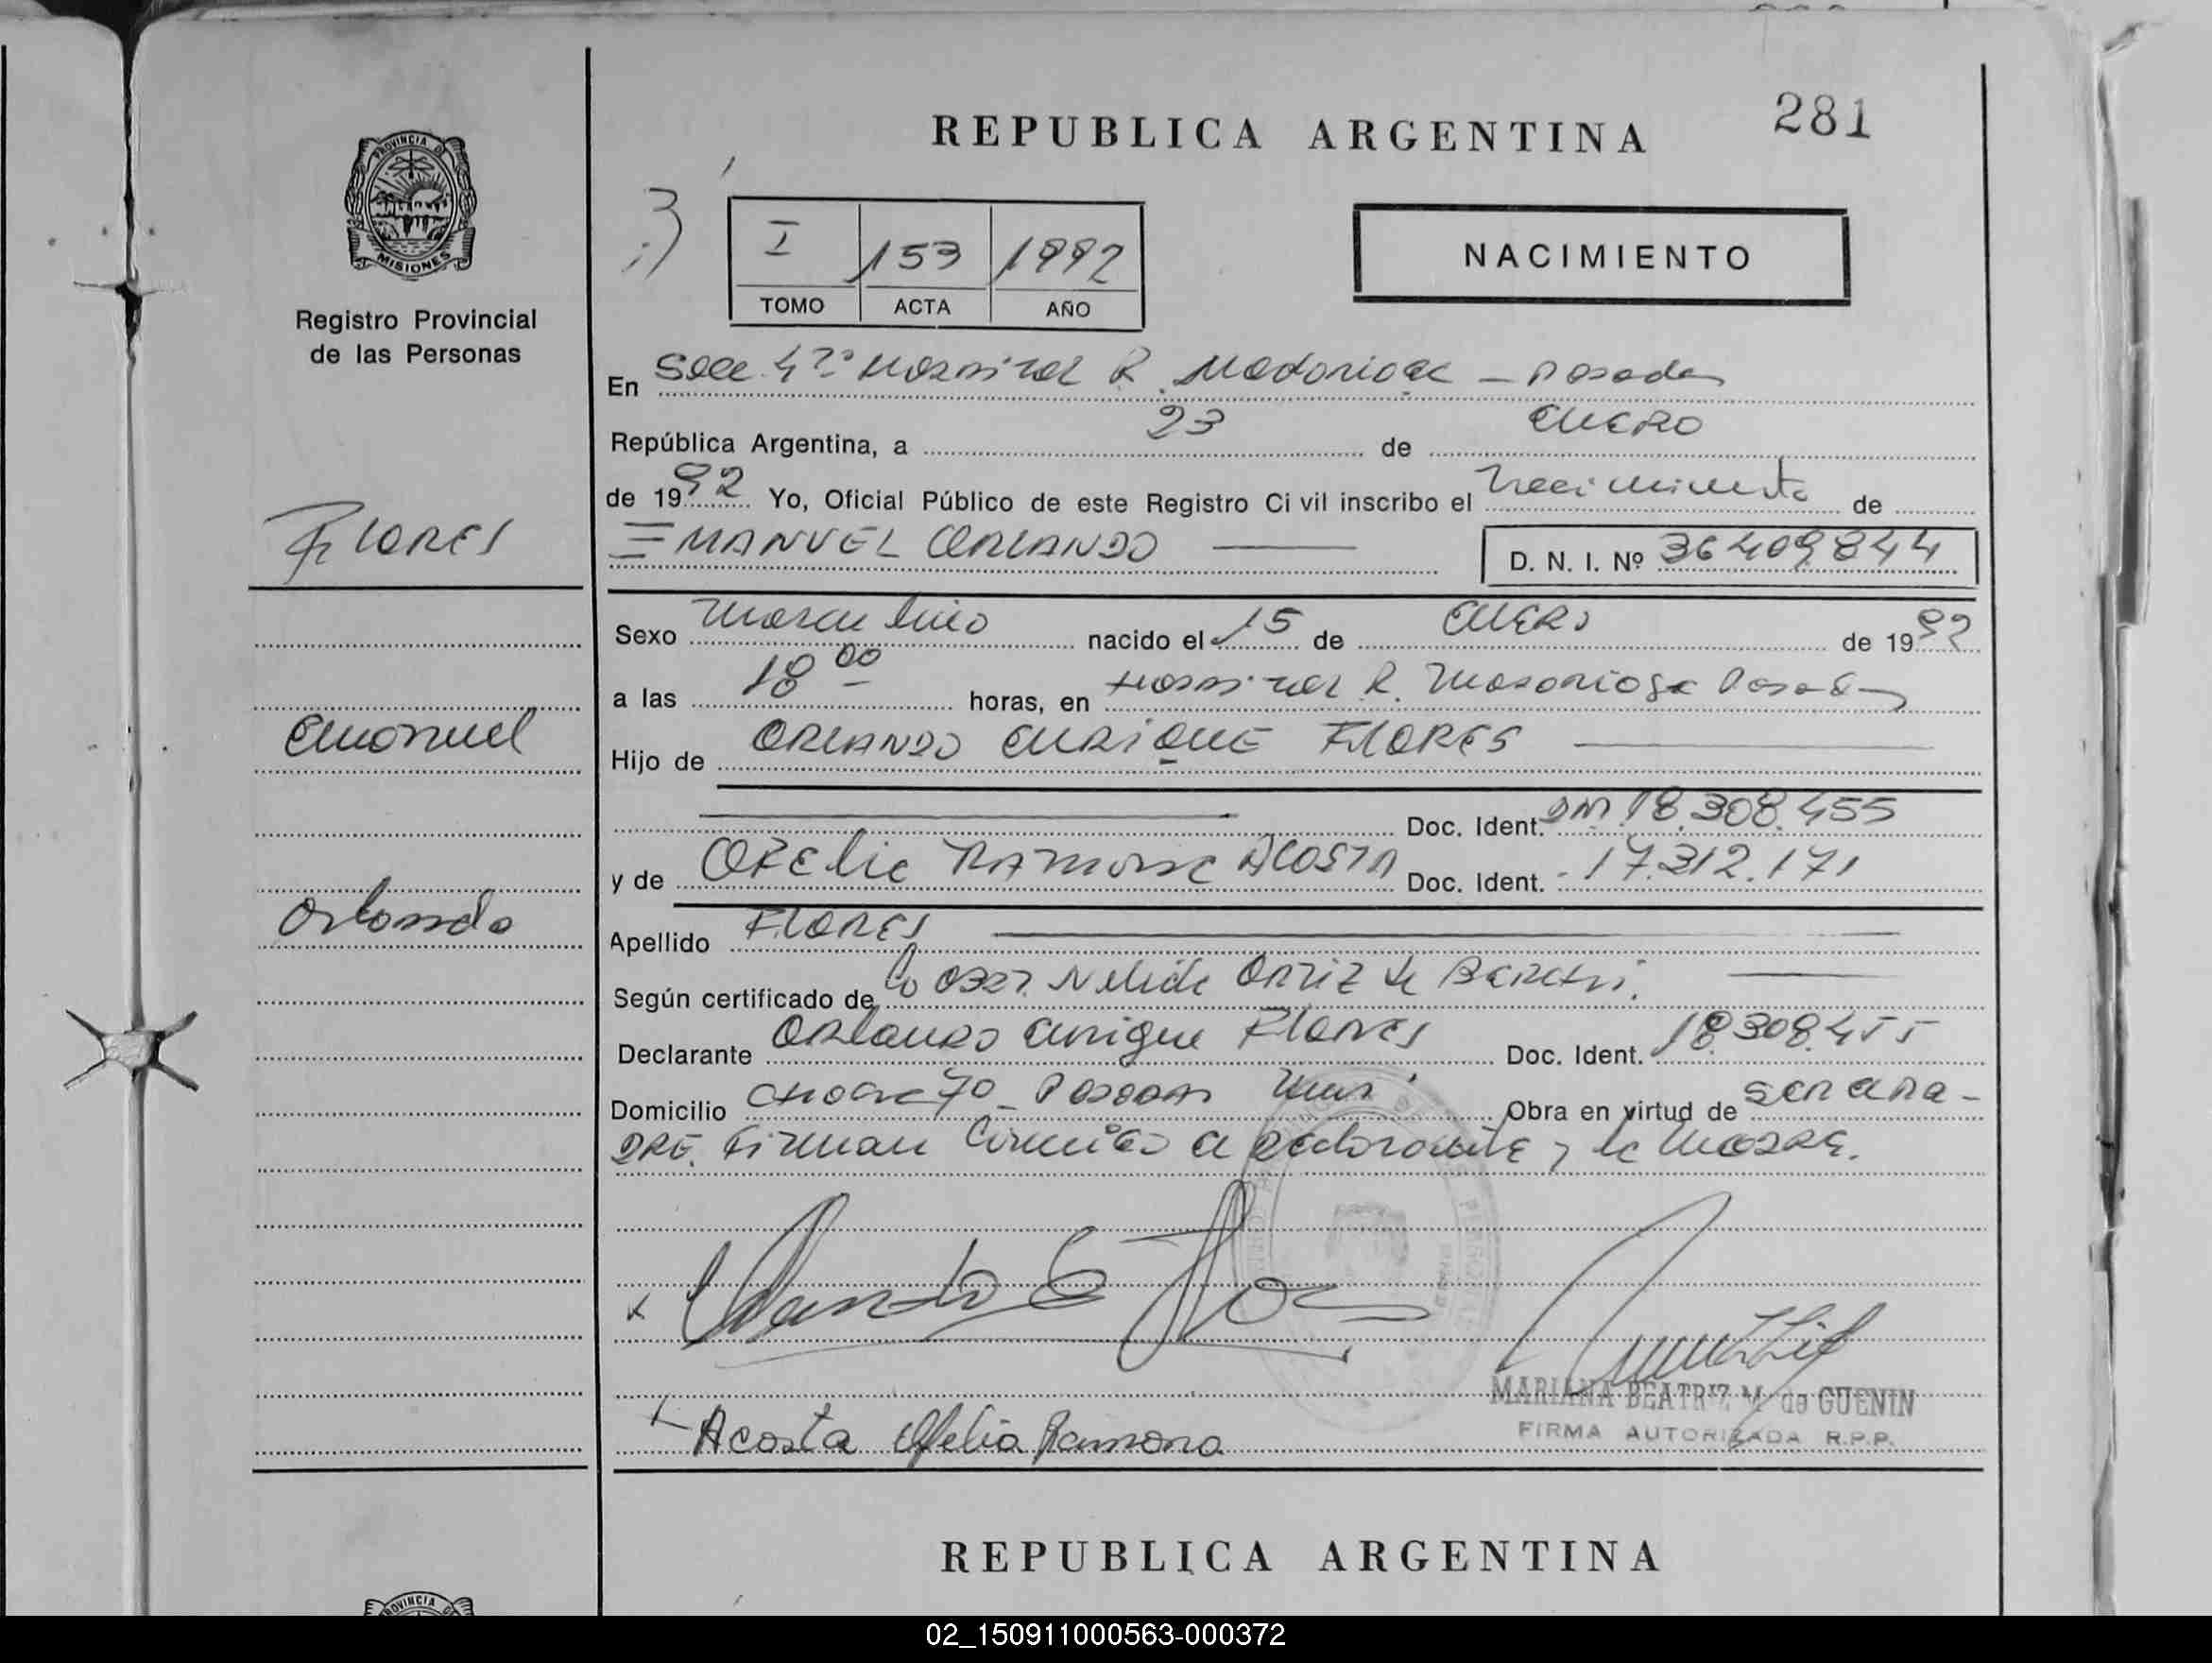 281
REPUBLICA ARGENTINA
PROVINCIA DE
MISIONES
Registro Provincial
de las Personas
I 153 1992
TOMO ACTA AÑO
NACIMIENTO
En Secc. 4ta Hospital R. Madariaga - Posadas
República Argentina, a 23 de ENERO
de 1992 Yo, Oficial Público de este Registro Civil inscribo el nacimiento de
FLORES
EMANUEL ORLANDO
D. N. I. Nº 36409844
Sexo masculino nacido el 15 de ENERO de 1992
a las 18 00 horas, en Hospital R. Madariaga Posadas
Emanuel
Hijo de ORLANDO ENRIQUE FLORES
Doc. Ident. DNI 18.308.455
y de OFELIA RAMONA ACOSTA Doc. Ident. 17.312.171
Orlando
Apellido FLORES
Según certificado de Nelida ORTIZ de
Declarante Orlando Enrique FLORES Doc. Ident. 18.308.455
Domicilio 70 - Posadas Obra en virtud de SER EL PA-
DRE. Firman el declarante y la MADRE.
Orlando E
MARIANA BEATRIZ M de GUENIN
FIRMA AUTORIZADA R.P.P.
Acosta Ofelia Ramona
REPUBLICA ARGENTINA
PROVINCIA
02_150911000563-000372